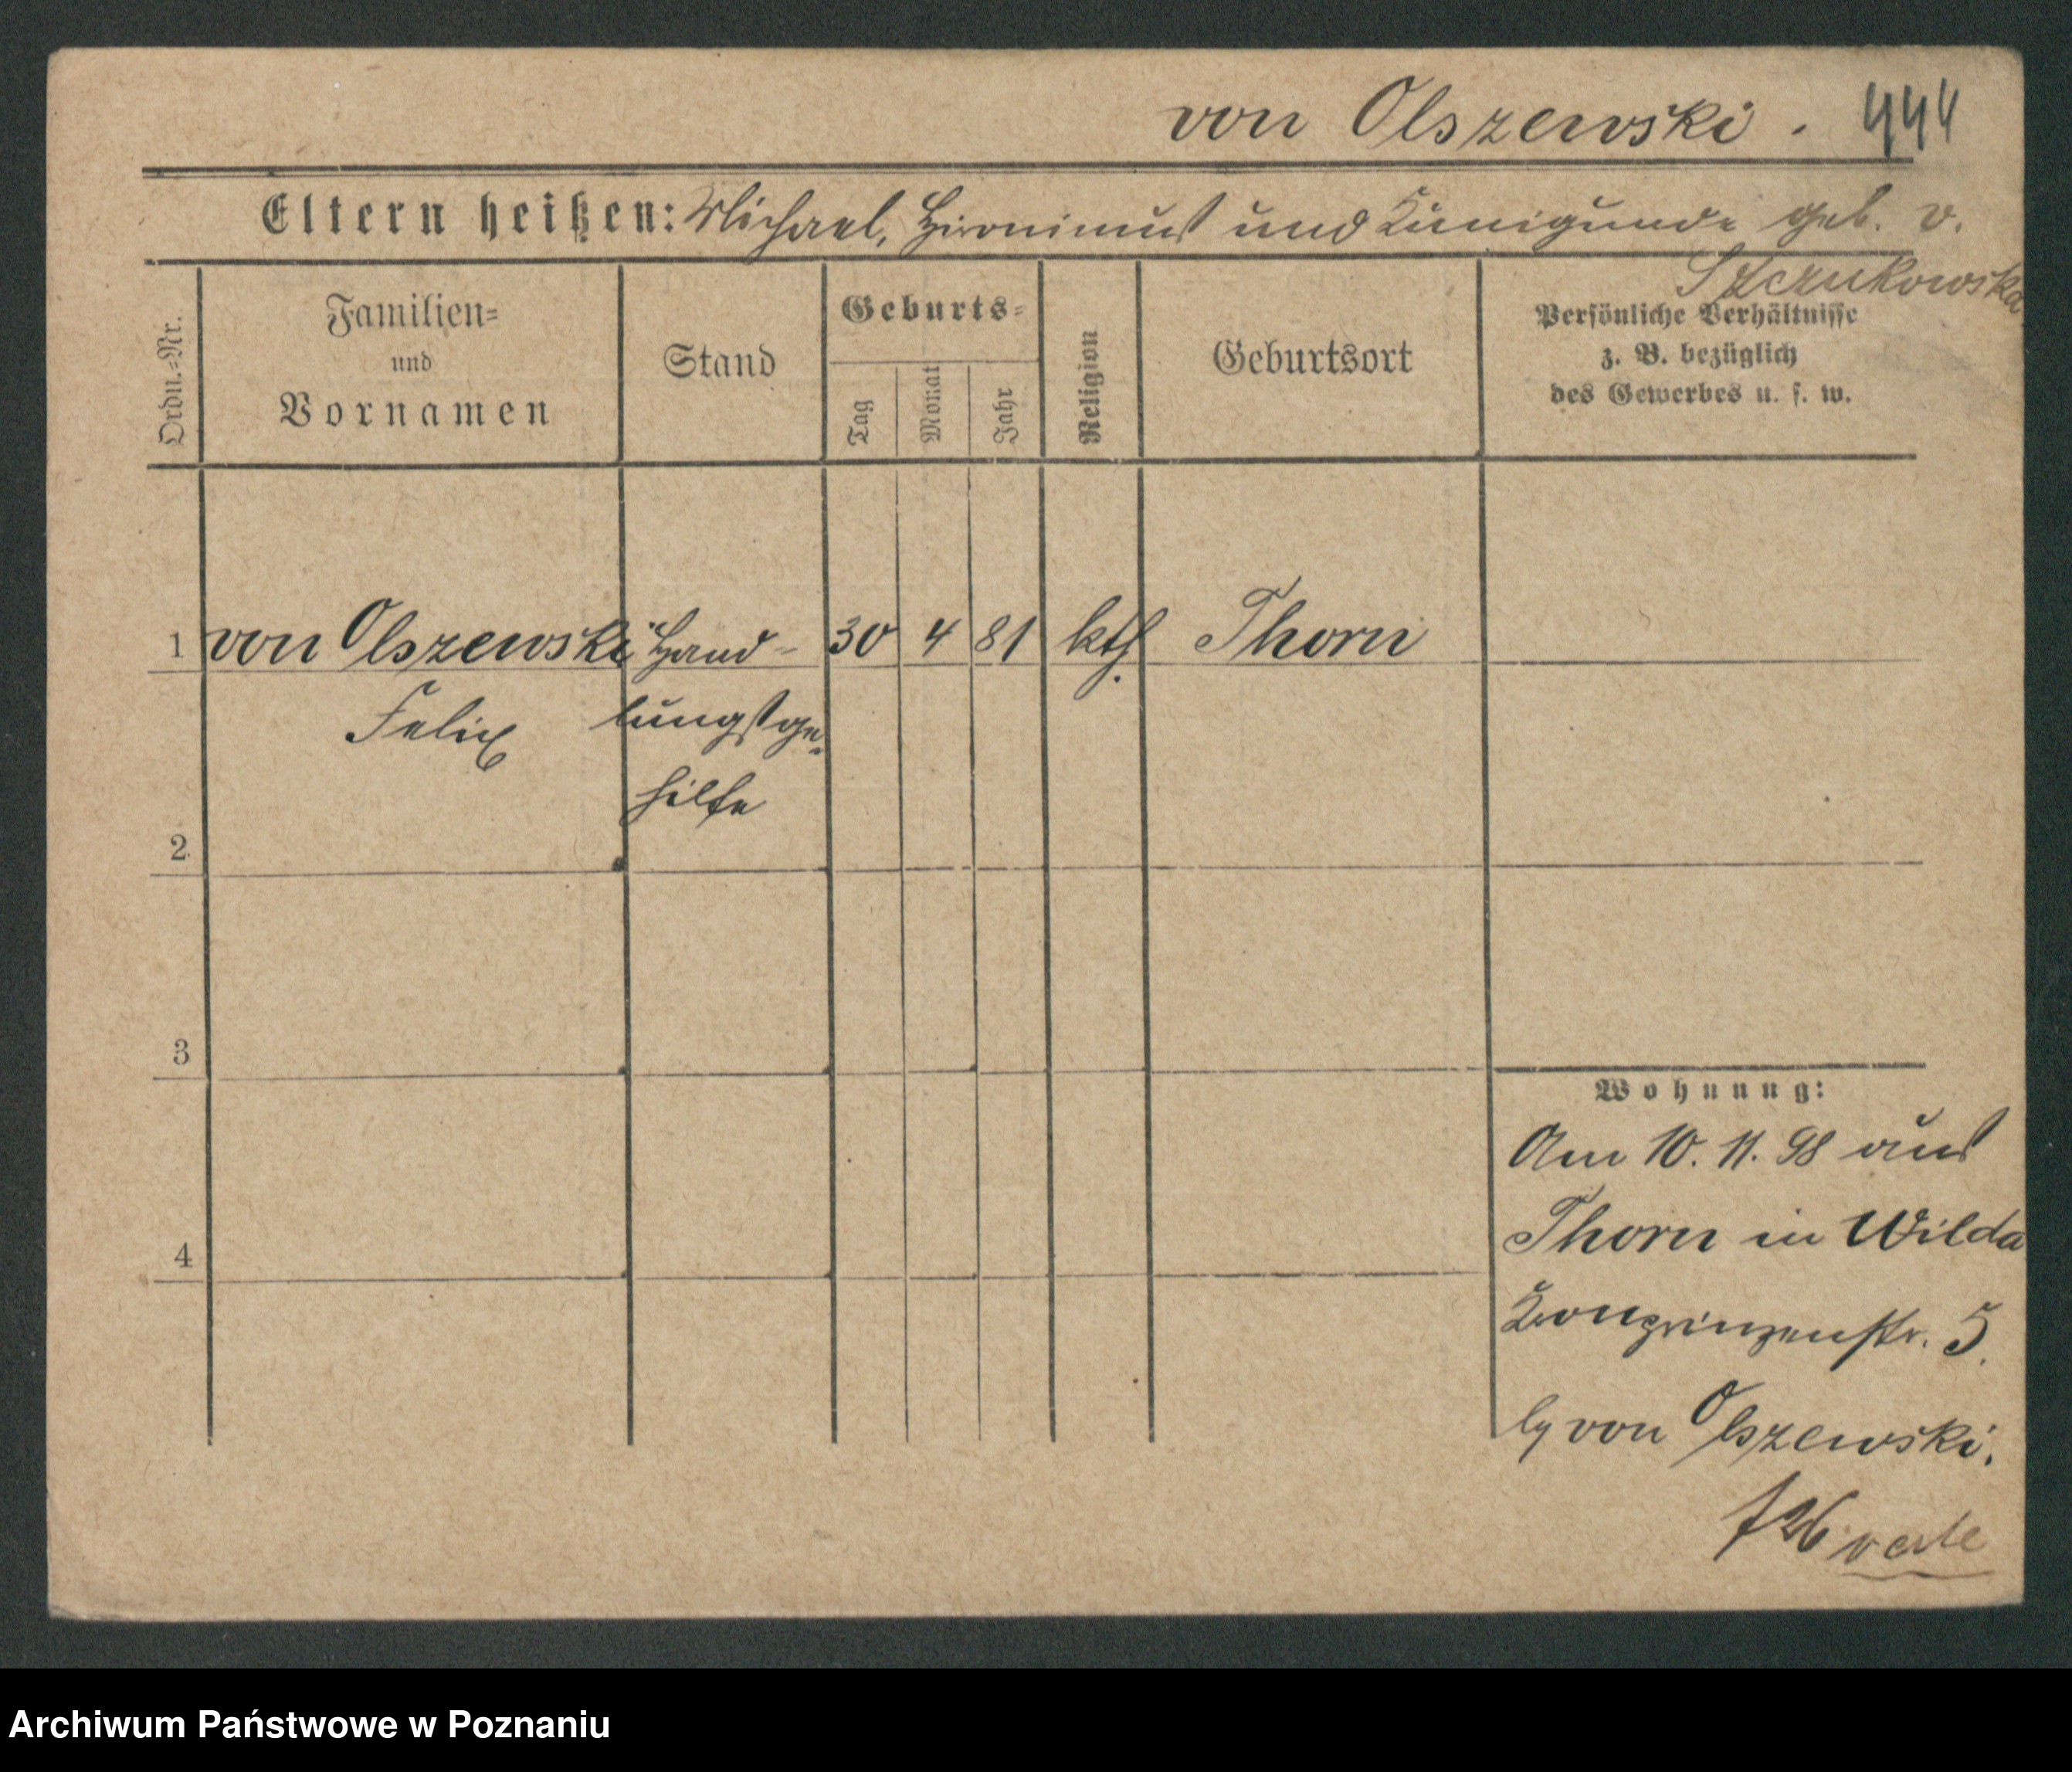 von Olszewski. 444
Eltern heißen: Michael, Hironimus und Kunigunde geb. v.
Szczukowska
Ordn.-Nr.
Familien-
und
Vornamen
Stand
Geburts-
Tag
Monat
Jahr
Religion
Geburtsort
Persönliche Verhältnisse
z. B. bezüglich
des Gewerbes u. s. w.
1 von Olszewski Hand- 30 4 81 kth. Thorn
Felix lungsge-
hilfe
2
3
4
Wohnung:
Am 10. 11. 98 aus
Thorn in Wilda
Kronprinzenstr. 5.
von Olszewski.
verte
Archiwum Państwowe w Poznaniu